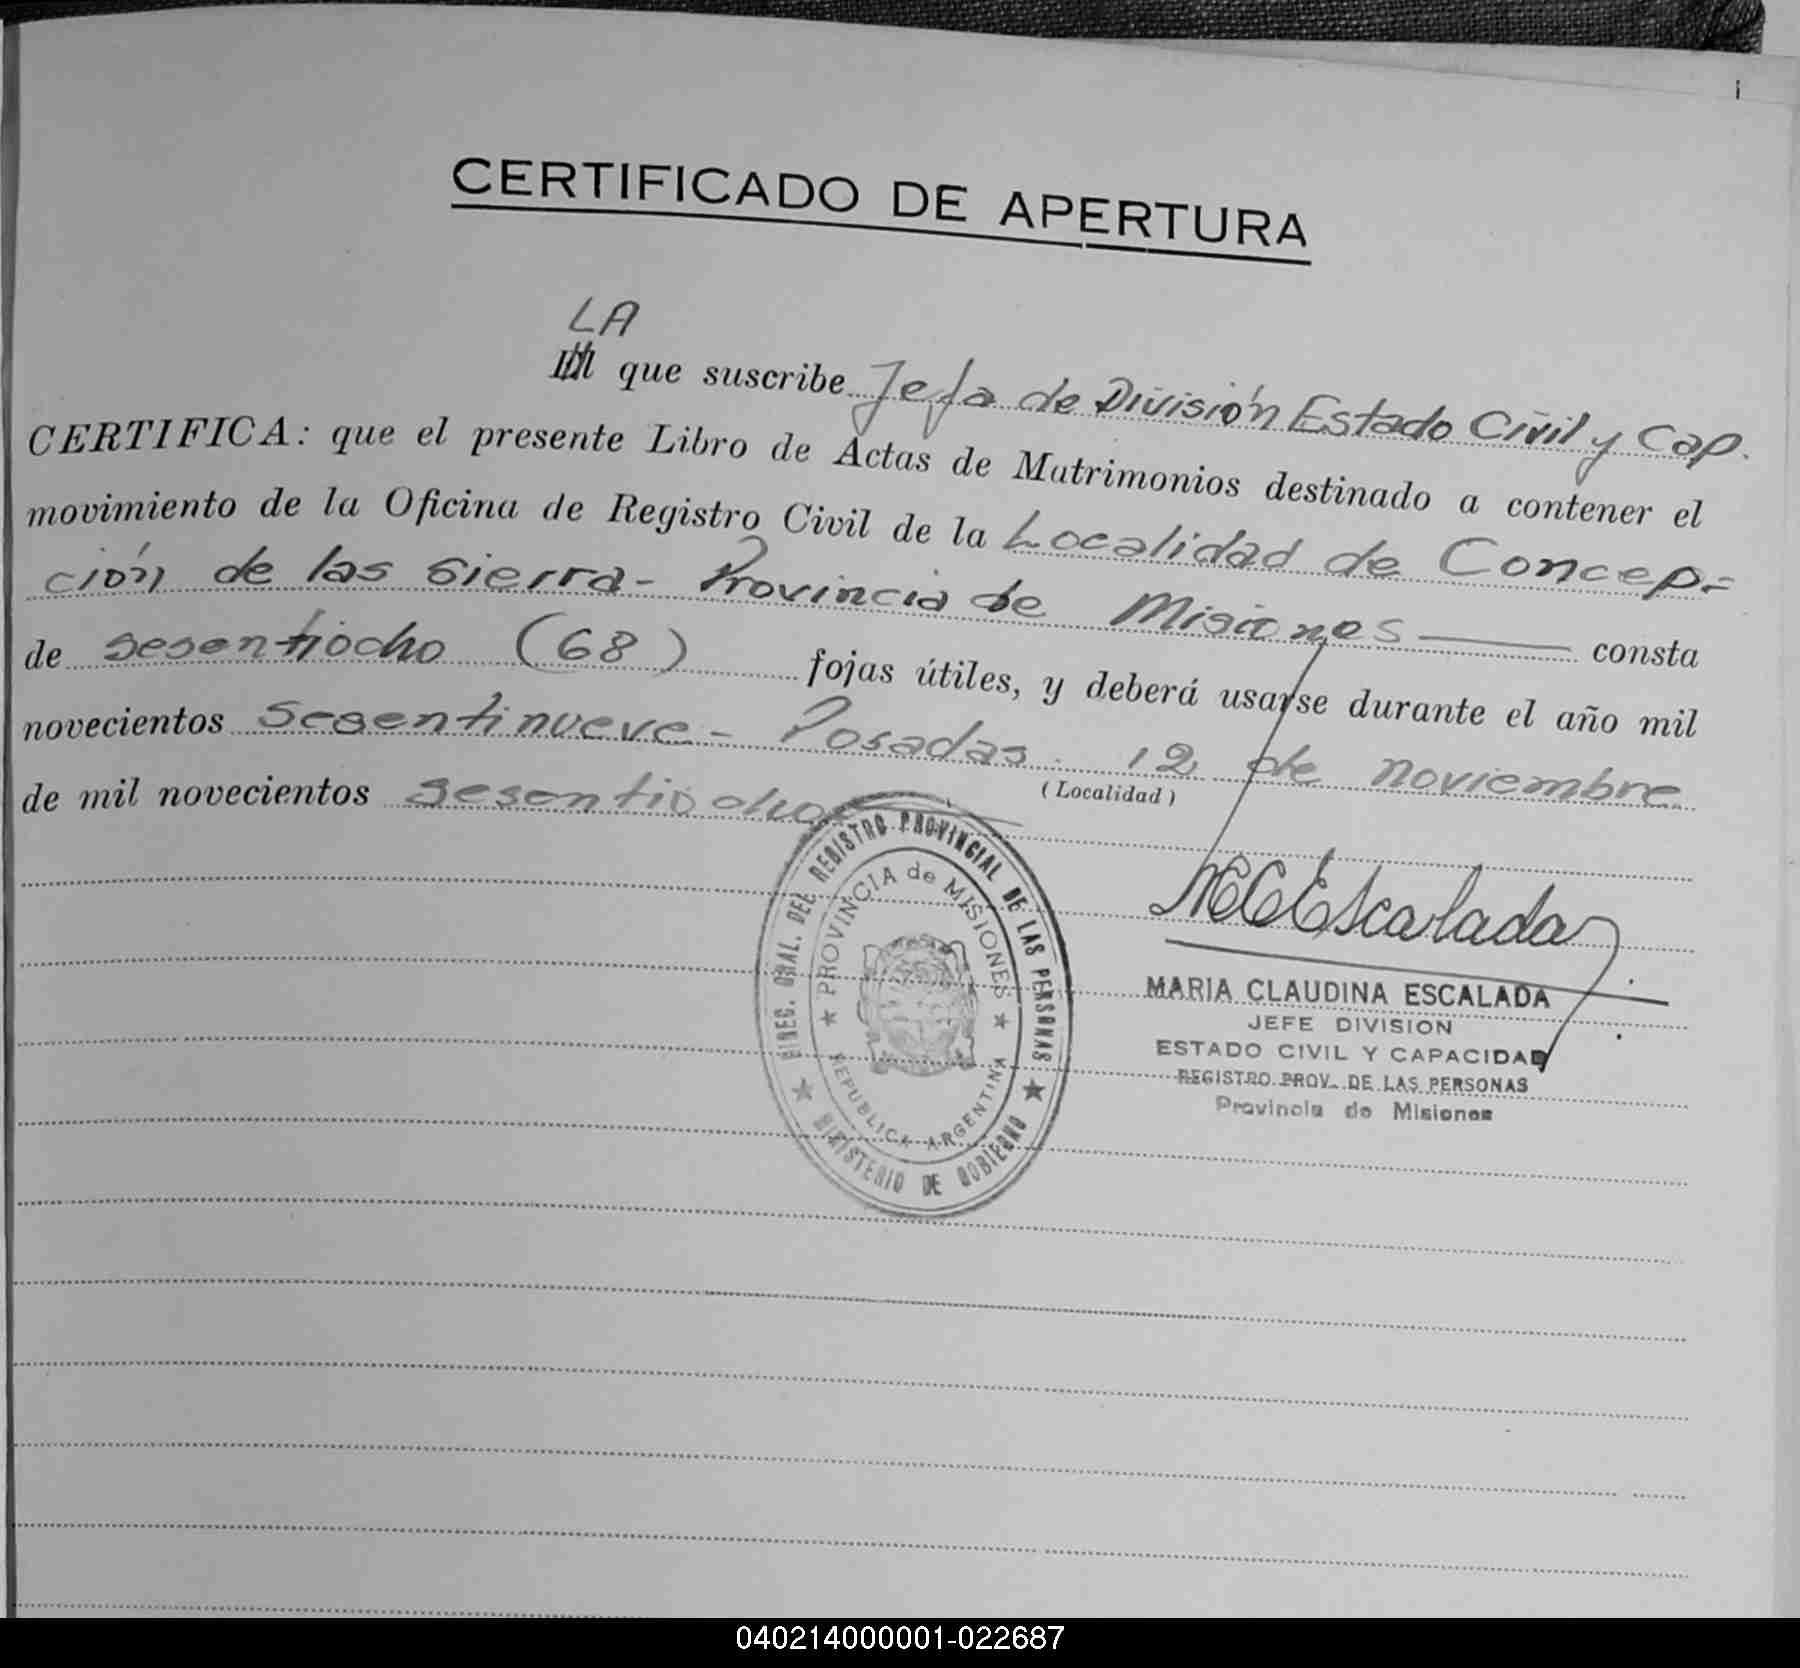 CERTIFICADO DE APERTURA
LA
El que suscribe Jefa de División Estado Civil y Cap.
CERTIFICA: que el presente Libro de Actas de Matrimonios destinado a contener el
movimiento de la Oficina de Registro Civil de la Localidad de Concep=
ción de las Sierra- Provincia de Misiones consta
de sesentiocho (68) fojas útiles, y deberá usarse durante el año mil
novecientos sesentinueve - Posadas. 12 de noviembre
(Localidad)
de mil novecientos sesentiocho
DIREC. GRAL. DEL REGISTRO PROVINCIAL DE LAS PERSONAS
★ MINISTERIO DE GOBIERNO ★
★ PROVINCIA de MISIONES ★
REPUBLICA ARGENTINA
MCEscalada
MARIA CLAUDINA ESCALADA
JEFE DIVISION
ESTADO CIVIL Y CAPACIDAD
REGISTRO PROV. DE LAS PERSONAS
Provincia de Misiones
040214000001-022687